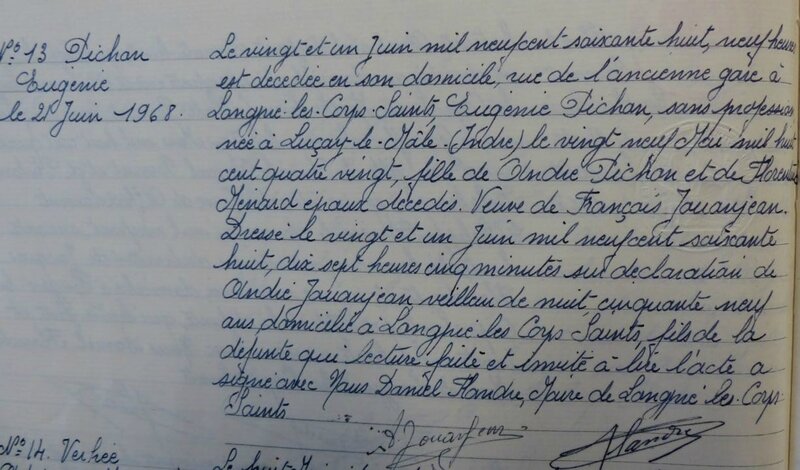 N° 13 Pichan
Eugénie
le 21 Juin 1968.
Le vingt et un Juin mil neuf cent soixante huit, neuf heures
est décédée en son domicile, rue de l'ancienne gare à
Longpré-les-Corps-Saints, Eugénie Pichan, sans profession
née à Luçay-le-Mâle (Indre) le vingt neuf Mai mil huit
cent quatre vingt, fille de André Pichan et de Florentine
Ménard époux décédés. Veuve de François Jouanjean.
Dressé le vingt et un Juin mil neuf cent soixante
huit, dix sept heures cinq minutes sur déclaration de
André Jouanjean veilleur de nuit, cinquante neuf
ans domicilié à Longpré les Corps Saints, fils de la
défunte qui lecture faite et invité à lire l'acte a
signé avec Nous Daniel Flandre, Maire de Longpré les-Corps-
Saints
A Jouanjean
Flandre
N° 14. Verhée
Le huit